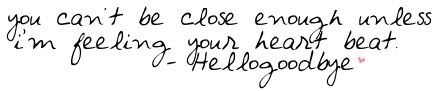 you can't be close enough unless
i'm feeling your heart beat.
- Hellogoodbye